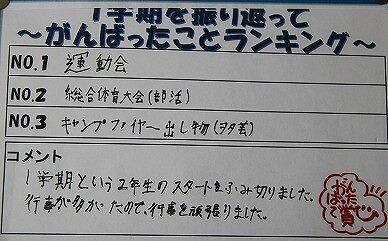 1学期を振り返って
～がんばったことランキング～
NO.1 運動会
NO.2 総合体育大会(部活)
NO.3 キャンプファイヤー出し物(ヲタ芸)
コメント
1学期という2年生のスタートをふみ切りました。
行事が多かったので、行事を頑張りました。
がんばったで賞